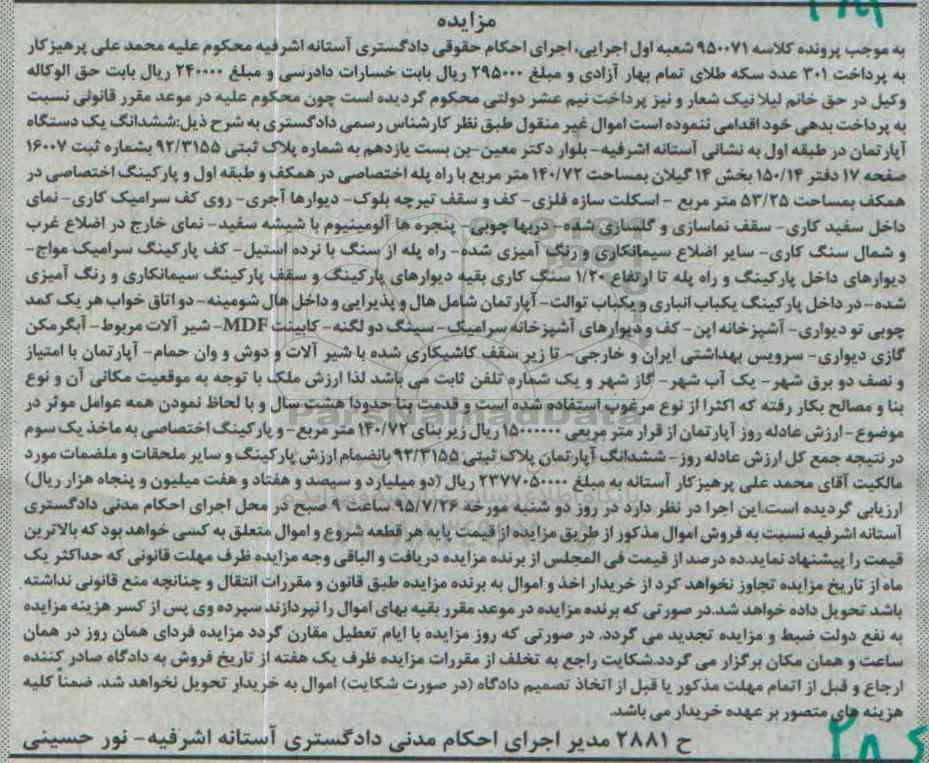 مزایده
به موجب پرونده کلاسه ۹۵۰۰۷۱ شعبه اول اجرایی، اجرای احکام حقوقی دادگستری آستانه اشرفیه محکوم علیه محمد علی پرهیزکار
به پرداخت ۳۰۱ عدد سکه طلای تمام بهار آزادی و مبلغ ۲۹۵۰۰۰ ریال بابت خسارات دادرسی و مبلغ ۲۴۰۰۰۰ ریال بابت حق الوکاله
وکیل در حق خانم لیلا نیک شعار و نیز پرداخت نیم عشر دولتی محکوم گردیده است چون محکوم علیه در موعد مقرر قانونی نسبت
به پرداخت بدهی خود اقدامی ننموده است اموال غیر منقول طبق نظر کارشناس رسمی دادگستری به شرح ذیل:ششدانگ یک دستگاه
آپارتمان در طبقه اول به نشانی آستانه اشرفیه- بلوار دکتر معین-بن بست یازدهم به شماره پلاک ثبتی ۹۲/۳۱۵۵ بشماره ثبت ۱۶۰۰۷
صفحه ۱۷ دفتر ۱۵۰/۱۴ بخش ۱۴ گیلان بمساحت ۱۴۰/۷۲ متر مربع با راه پله اختصاصی در همکف و طبقه اول و پارکینگ اختصاصی در
همکف بمساحت ۵۳/۲۵ متر مربع - اسکلت سازه فلزی- کف و سقف تیرچه بلوک- دیوارها آجری- روی کف سرامیک کاری- نمای
داخل سفید کاری- سقف نماسازی و گلسازی شده- دربها چوبی- پنجره ها آلومینیوم با شیشه سفید- نمای خارج در اضلاع غرب
و شمال سنگ کاری- سایر اضلاع سیمانکاری و رنگ آمیزی شده- راه پله از سنگ با نرده استیل- کف پارکینگ سرامیک مواج-
دیوارهای داخل پارکینگ و راه پله تا ارتفاع ۱/۲۰ سنگ کاری بقیه دیوارهای پارکینگ و سقف پارکینگ سیمانکاری و رنگ آمیزی
شده- در داخل پارکینگ یکباب انباری و یکباب توالت- آپارتمان شامل هال و پذیرایی و داخل هال شومینه- دو اتاق خواب هر یک کمد
چوبی تو دیواری- آشپزخانه اپن- کف و دیوارهای آشپزخانه سرامیک- سینگ دو لگنه- کابینت MDF- شیر آلات مربوط- آبگرمکن
گازی دیواری- سرویس بهداشتی ایران و خارجی- تا زیر سقف کاشیکاری شده با شیر آلات و دوش و وان حمام- آپارتمان با امتیاز
و نصف دو برق شهر- یک آب شهر- گاز شهر و یک شماره تلفن ثابت می باشد لذا ارزش ملک با توجه به موقعیت مکانی آن و نوع
بنا و مصالح بکار رفته که اکثرا از نوع مرغوب استفاده شده است و قدمت بنا حدودا هشت سال و با لحاظ نمودن همه عوامل موثر در
موضوع- ارزش عادله روز آپارتمان از قرار متر مربعی ۱۵۰۰۰۰۰۰ ریال زیر بنای ۱۴۰/۷۲ متر مربع- و پارکینگ اختصاصی به ماخذ یک سوم
در نتیجه جمع کل ارزش عادله روز- ششدانگ آپارتمان پلاک ثبتی ۹۲/۳۱۵۵ بانضمام ارزش پارکینگ و سایر ملحقات و ملضمات مورد
مالکیت آقای محمد علی پرهیز کار آستانه به مبلغ ۲۳۷۷۰۵۰۰۰۰ ریال (دو میلیارد و سیصد و هفتاد و هفت میلیون و پنجاه هزار ریال)
ارزیابی گردیده است.این اجرا در نظر دارد در روز دو شنبه مورخه ۹۵/۷/۲۶ ساعت ۹ صبح در محل اجرای احکام مدنی دادگستری
آستانه اشرفیه نسبت به فروش اموال مذکور از طریق مزایده از قیمت پایه هر قطعه شروع و اموال متعلق به کسی خواهد بود که بالاترین
قیمت را پیشنهاد نماید.ده درصد از قیمت فی المجلس از برنده مزایده دریافت و الباقی وجه مزایده ظرف مهلت قانونی که حداکثر یک
ماه از تاریخ مزایده تجاوز نخواهد کرد از خریدار اخذ و اموال به برنده مزایده طبق قانون و مقررات انتقال و چنانچه منع قانونی نداشته
باشد تحویل داده خواهد شد.در صورتی که برنده مزایده در موعد مقرر بقیه بهای اموال را نپردازند سپرده وی پس از کسر هزینه مزایده
به نفع دولت ضبط و مزایده تجدید می گردد. در صورتی که روز مزایده با ایام تعطیل مقارن گردد مزایده فردای همان روز در همان
ساعت و همان مکان برگزار می گردد.شکایت راجع به تخلف از مقررات مزایده ظرف یک هفته از تاریخ فروش به دادگاه صادر کننده
ارجاع و قبل از اتمام مهلت مذکور یا قبل از اتخاذ تصمیم دادگاه (در صورت شکایت) اموال به خریدار تحویل نخواهد شد. ضمناً کلیه
هزینه های متصور بر عهده خریدار می باشد.
ح ۲۸۸۱ مدیر اجرای احکام مدنی دادگستری آستانه اشرفیه- نور حسینی
ParsNamadData